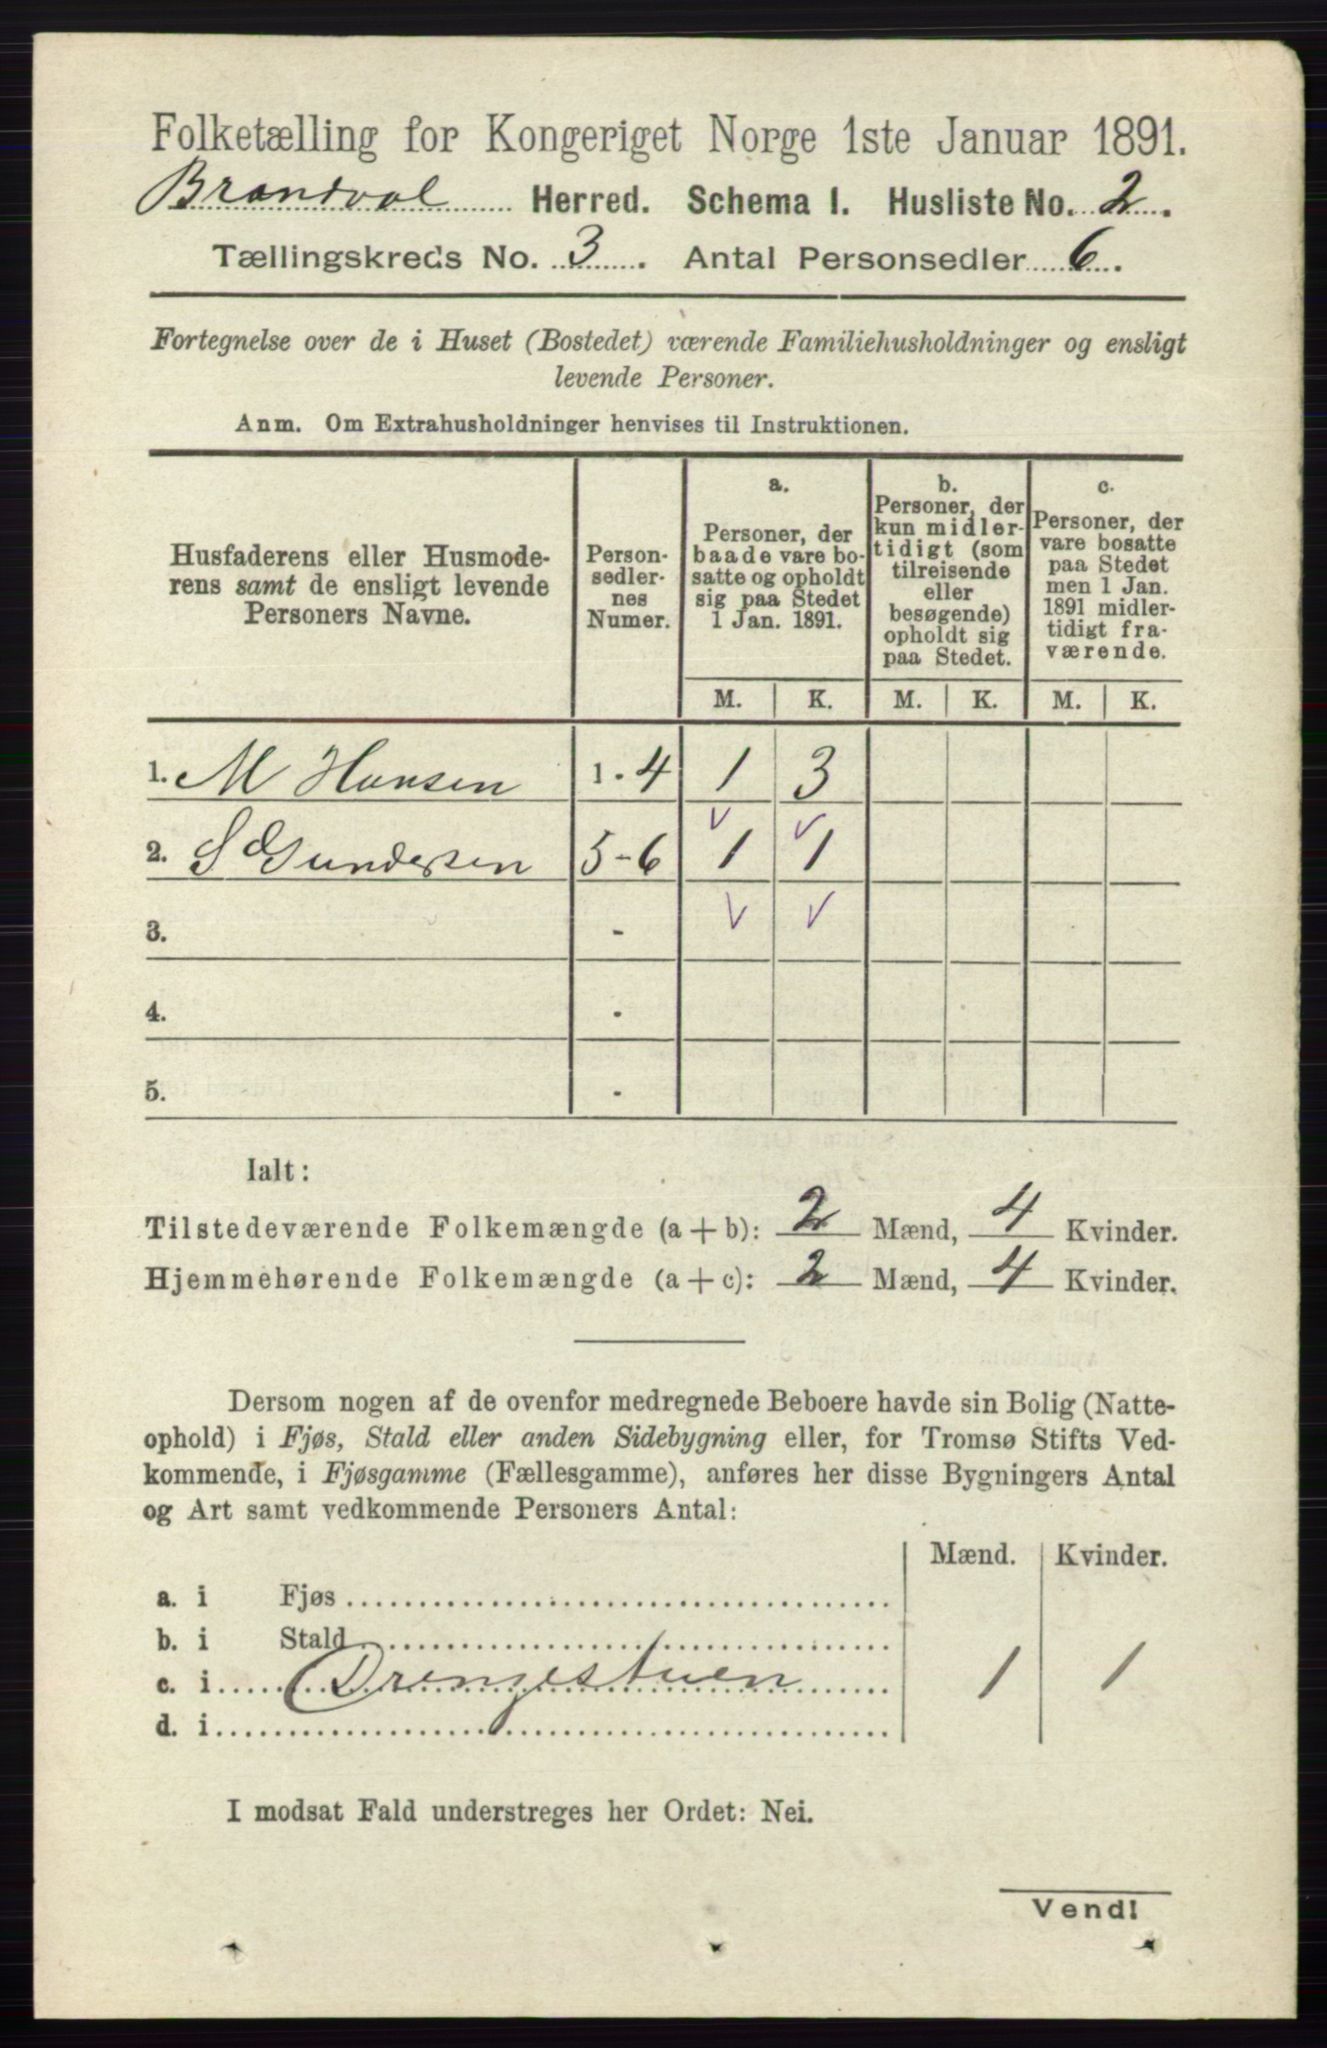 Folketælling for Kongeriget Norge 1ste Januar 1891.
Brandval Herred. Schema I. Husliste No. 2.
Tællingskreds No. 3. Antal Personsedler 6.
Fortegnelse over de i Huset (Bostedet) værende Familiehusholdninger og ensligt
levende Personer.
Anm. Om Extrahusholdninger henvises til Instruktionen.
Husfaderens eller Husmode-
rens samt de ensligt levende
Personers Navne.
Person-
sedler-
nes
Numer.
a.
Personer, der
baade vare bo-
satte og opholdt
sig paa Stedet
1 Jan. 1891.
b.
Personer, der
kun midler-
tidigt (som
tilreisende
eller
besøgende)
opholdt sig
paa Stedet.
c.
Personer, der
vare bosatte
paa Stedet
men 1 Jan.
1891 midler-
tidigt fra-
værende.
M. K. M. K. M. K.
1. M Hansen 1 - 4 1 3
2. S Gundersen 5 - 6 1 1
3. -
4. -
5. -
Ialt:
Tilstedeværende Folkemængde (a + b): 2 Mænd, 4 Kvinder.
Hjemmehørende Folkemængde (a + c): 2 Mænd, 4 Kvinder.
Dersom nogen af de ovenfor medregnede Beboere havde sin Bolig (Natte-
ophold) i Fjøs, Stald eller anden Sidebygning eller, for Tromsø Stifts Ved-
kommende, i Fjøsgamme (Fællesgamme), anføres her disse Bygningers Antal
og Art samt vedkommende Personers Antal:
Mænd. Kvinder.
a. i Fjøs
b. i Stald
c. i Drengestuen 1 1
d. i
I modsat Fald understreges her Ordet: Nei.
Vend!